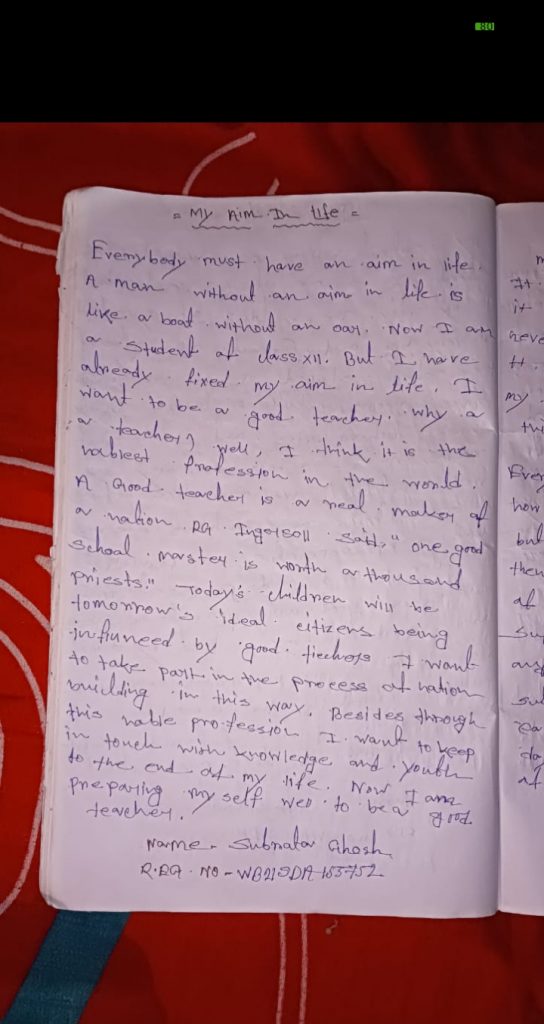 80
= My Aim In life =
Everybody must have an aim in life.
A man without an aim in life is
like a boat without an oar. Now I am
a student of class XII. But I have
already fixed my aim in life. I
want to be a good teacher. why a
a teacher? well, I think it is the
noblest Profession in the world.
A Good teacher is a real maker of
a nation. RG. Ingersoll said, "one good
school master is worth a thousand
priests." Today's children will be
tomorrow's ideal citizens being
by good I want
to take part in the process of nation
building in this way. Besides through
this noble profession I want to keep
in touch with knowledge and youth
to the end of my life. Now I am
preparing my self well to be a good
teacher.
Name - Subrata Ghosh
NO - WB21SDA
It
it
neve
tt.
my
thi
Ever
how
but
then
of
su
any
sul
ea
da
of